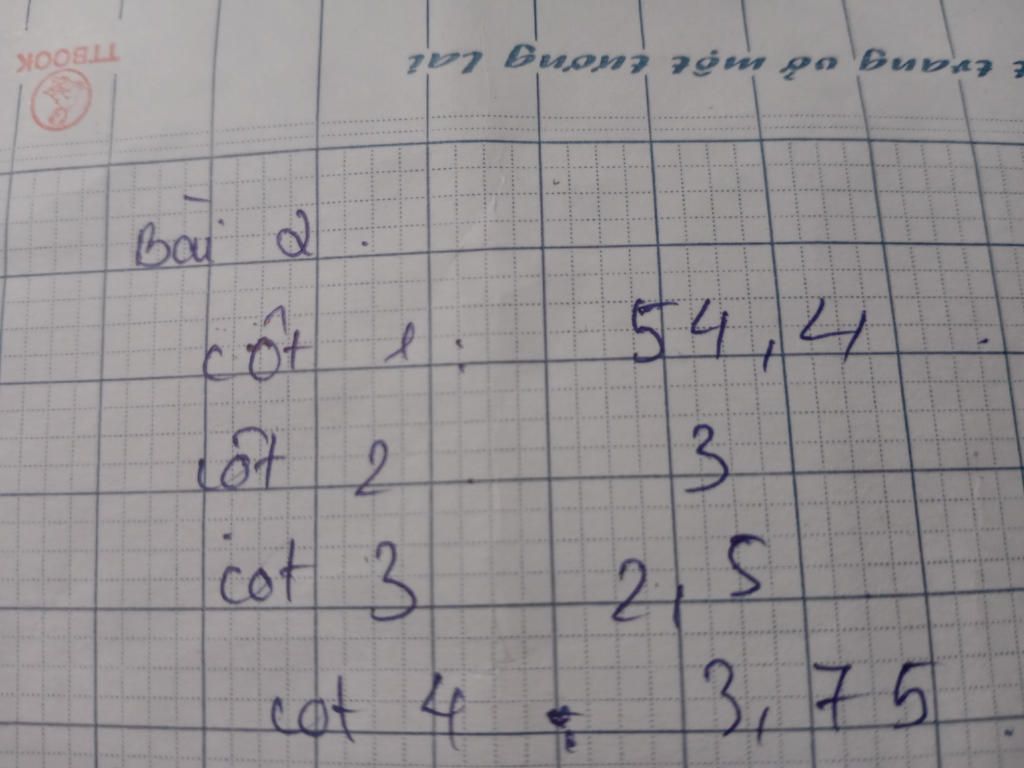 TTBOOK
t trang vở một tương lai
Bài 2.
cột 1: 54,4.
cột 2. 3
cot 3 2,5
cot 4: 3,75.